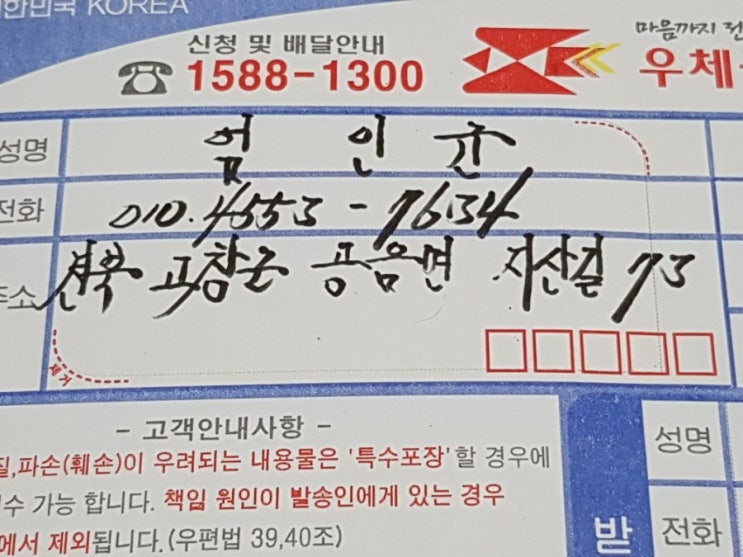 대한민국 KOREA
신청 및 배달안내
☎ 1588-1300
마음까지 전
우체
성명 엄 인 균
전화 010.4553-7634
주소 전북 고창군 공음면 지산길 73
제거
- 고객안내사항 -
질,파손(훼손)이 우려되는 내용물은 '특수포장'할 경우에
수 가능 합니다. 책임 원인이 발송인에게 있는 경우
에서 제외됩니다.(우편법 39,40조)
성명
받 전화